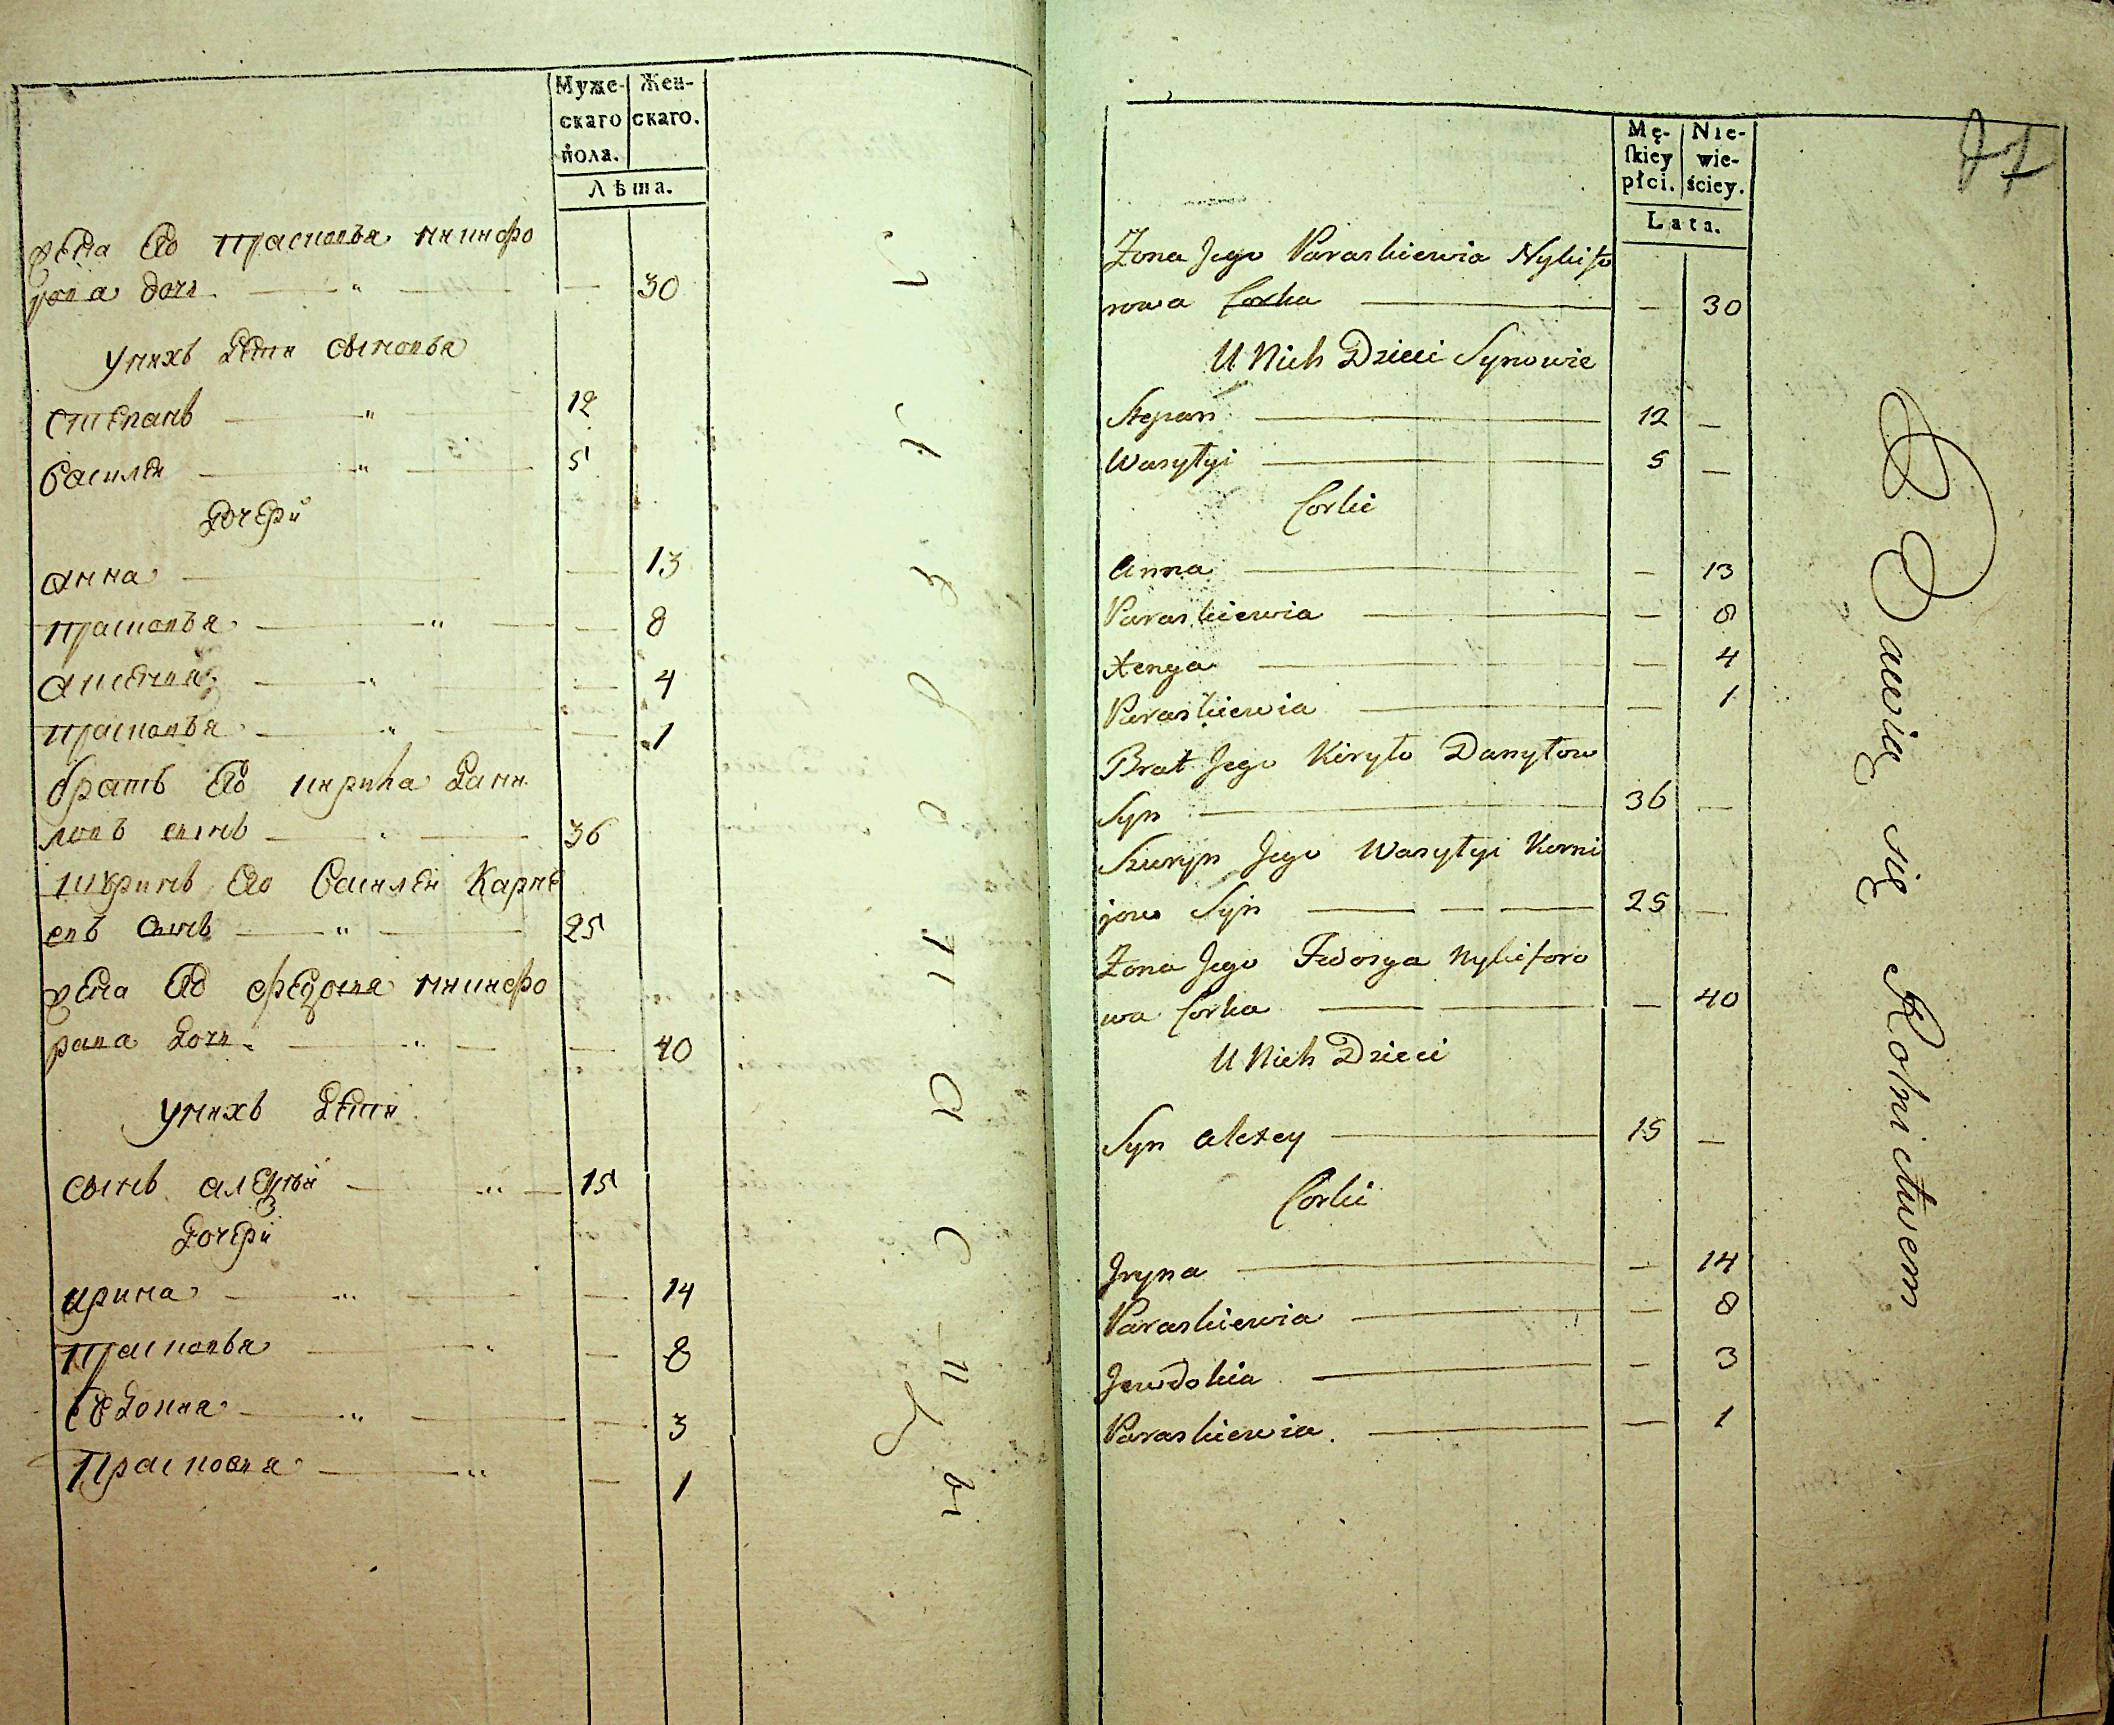 Муже-
скаго
пола.
Жен-
скаго.
Лѣта.
жена Его Прасковья Никифо
рова дочь 30
У нихъ дети сыновья
Степанъ 12
Василей 5
Дочери
Анна 13
Прасковья 8
4
Прасковья 1
братъ Его Кирила Дани
ловъ сынъ 36
шуринъ Его Василей Карне
евъ сынъ 25
жена Его Федосья Никифо
рова дочь 40
У нихъ дети
сынъ Алексей 15
Дочери
Ирина 14
Прасковья 8
Евдокия 3
Прасковья 1
Mę-
ſkiey
płci.
Nie-
wie-
ściey.
Lata.
Żona Jego Paraskiewia Nykifo
rowa Corka — 30
U Nich Dzieci Synowie
Stepan 12 —
Wasyłyi 5 —
Corki
Anna — 13
Paraskiewia — 8
Xenya — 4
Paraskiewia — 1
Brat Jego Kiryło Danyłow
Syn 36 —
Szuryn Jego Wasyłyi Korni
jow Syn 25 —
Żona Jego Fedosya Nykiforo
wa Corka — 40
U Nich Dzieci
Syn Alexey 15 —
Corki
Jryna — 14
Paraskiewia — 8
Jewdokia — 3
Paraskiewia — 1
Bawią się Rolnictwem